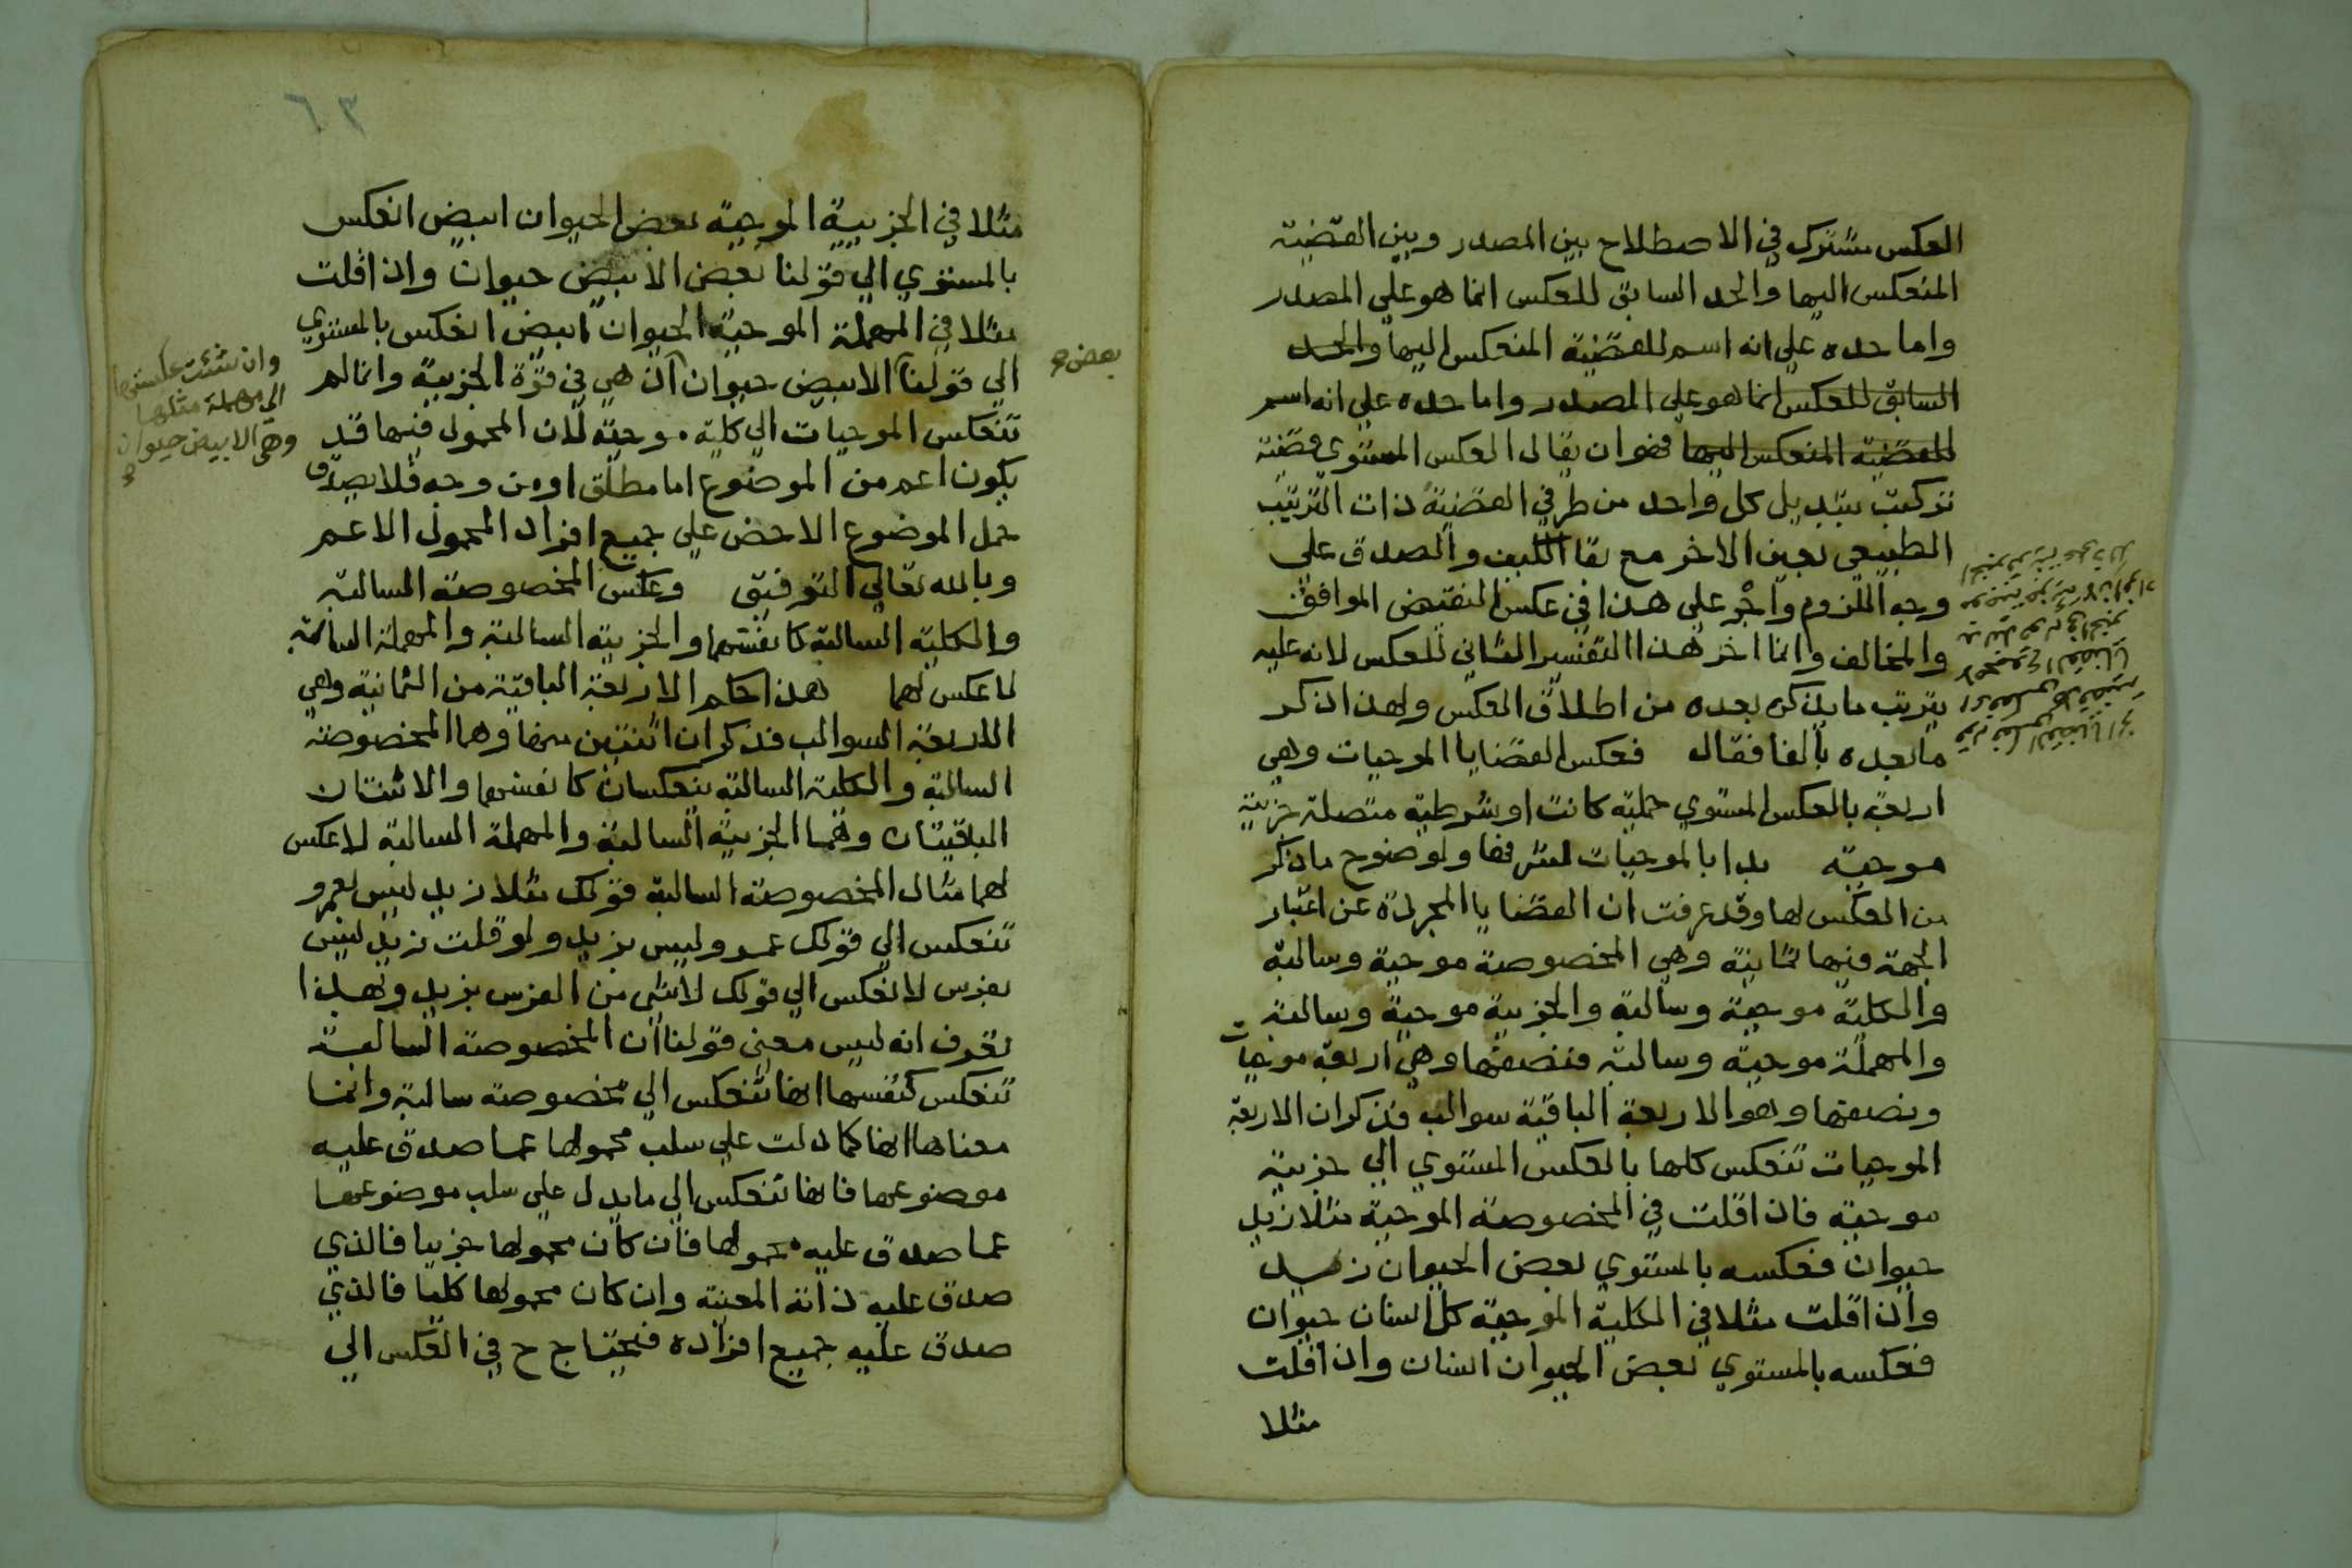 العكس مشترك في الاصطلاح بين المصدر وبين القضية
المنعكس اليها والحد السابق للعكس انما هو على المصدر
واما حده علي انه اسم للقضية المنعكس اليها والحد
السابق للعكس انما هو علي المصدر واما حده علي انه اسم
للقضية المنعكس اليها فهو ان يقال العكس المستوي قضية
تركبت بتبديل كل واحد من طرفي القضية ذات الترتيب
الطبيعي بعين الاخر مع بقا الكيف والصدق علي
وجه اللزوم واجر علي هذا في عكس النقيض الموافق
والمخالف وانما اخر هذا التفسير الثاني للعكس لانه عليه
يترتب ما يذكره بعده من اطلاق العكس ولهذا ذكر
ما بعده بالفا فقال فعكس القضايا الموجبات وهي
اربعة بالعكس المستوي حملية كانت او شرطية متصلة جزيية
موجبة بدا بالموجبات لشرفها ولوضوح ما ذكر
من العكس لها وقد عرفت ان القضايا المجردة عن اعتبار
الجهة فيها ثمانية وهي المخصوصة موجبة وسالبة
والكلية موجبة وسالبة والجزيية موجبة وسالبة
والمهملة موجبة وسالبة فنصفها وهي اربعة موجبات
ونصفها وهو الاربعة الباقية سوالب فذكر ان الاربعة
الموجبات تنعكس كلها بالعكس المستوي الي جزيية
موجبة فاذا قلت في المخصوصة الموجبة مثلا زيد
حيوان فعكسه بالمستوي بعض الحيوان زيد
واذا قلت مثلا في الكلية الموجبة كل انسان حيوان
فعكسه بالمستوي بعض الحيوان انسان واذا قلت
مثلا
٦٣
مثلا في الجزيية الموجبة بعض الحيوان ابيض انعكس
بالمستوي الي قولنا بعض الابيض حيوان واذا قلت
مثلا في المهملة الموجبة الحيوان ابيض انعكس بالمستوي
الي قولنا الابيض حيوان اذ هي في قوة الجزيية وانما لم
تنعكس الموجبات الي كلية موجبة لان المحمول فيها قد
يكون اعم من الموضوع اما مطلق او من وجه فلا يصدق
حمل الموضوع الاخص علي جميع افراد المحمول الاعم
وبالله تعالي التوفيق وعكس المخصوصة السالبة
والكلية السالبة كانفسهما والجزيية السالبة والمهملة السالبة
لا عكس لهما هذا حكم الاربعة الباقية من الثمانية وهي
الاربعة السوالب فذكر ان اثنتين منها وهما المخصوصة
السالبة والكلية السالبة ينعكسان كانفسهما والاثنتان
الباقيتان وهما الجزيية السالبة والمهملة السالبة لا عكس
لهما مثال المخصوصة السالبة قولك مثلا زيد ليس بعمرو
تنعكس الي قولك عمرو ليس بزيد ولو قلت زيد ليس
بفرس لانعكس الي قولك لا شي من الفرس بزيد وبهذا
تعرف انه ليس معني قولنا ان المخصوصة السالبة
تنعكس كنفسها انها تنعكس الي مخصوصة سالبة وانما
معناها انها كما دلت علي سلب محمولها عما صدق عليه
موضوعها فانها تنعكس الي ما يدل علي سلب موضوعها
عما صدق عليه محمولها فان كان محمولها جزييا فالذي
صدق عليه ذاته المعينة وان كان محمولها كليا فالذي
صدق عليه جميع افراده فتحتاج ح في العكس الي
بعض
وان شئت عكستها
الي مهملة مثلها
وهي الابيض حيوان